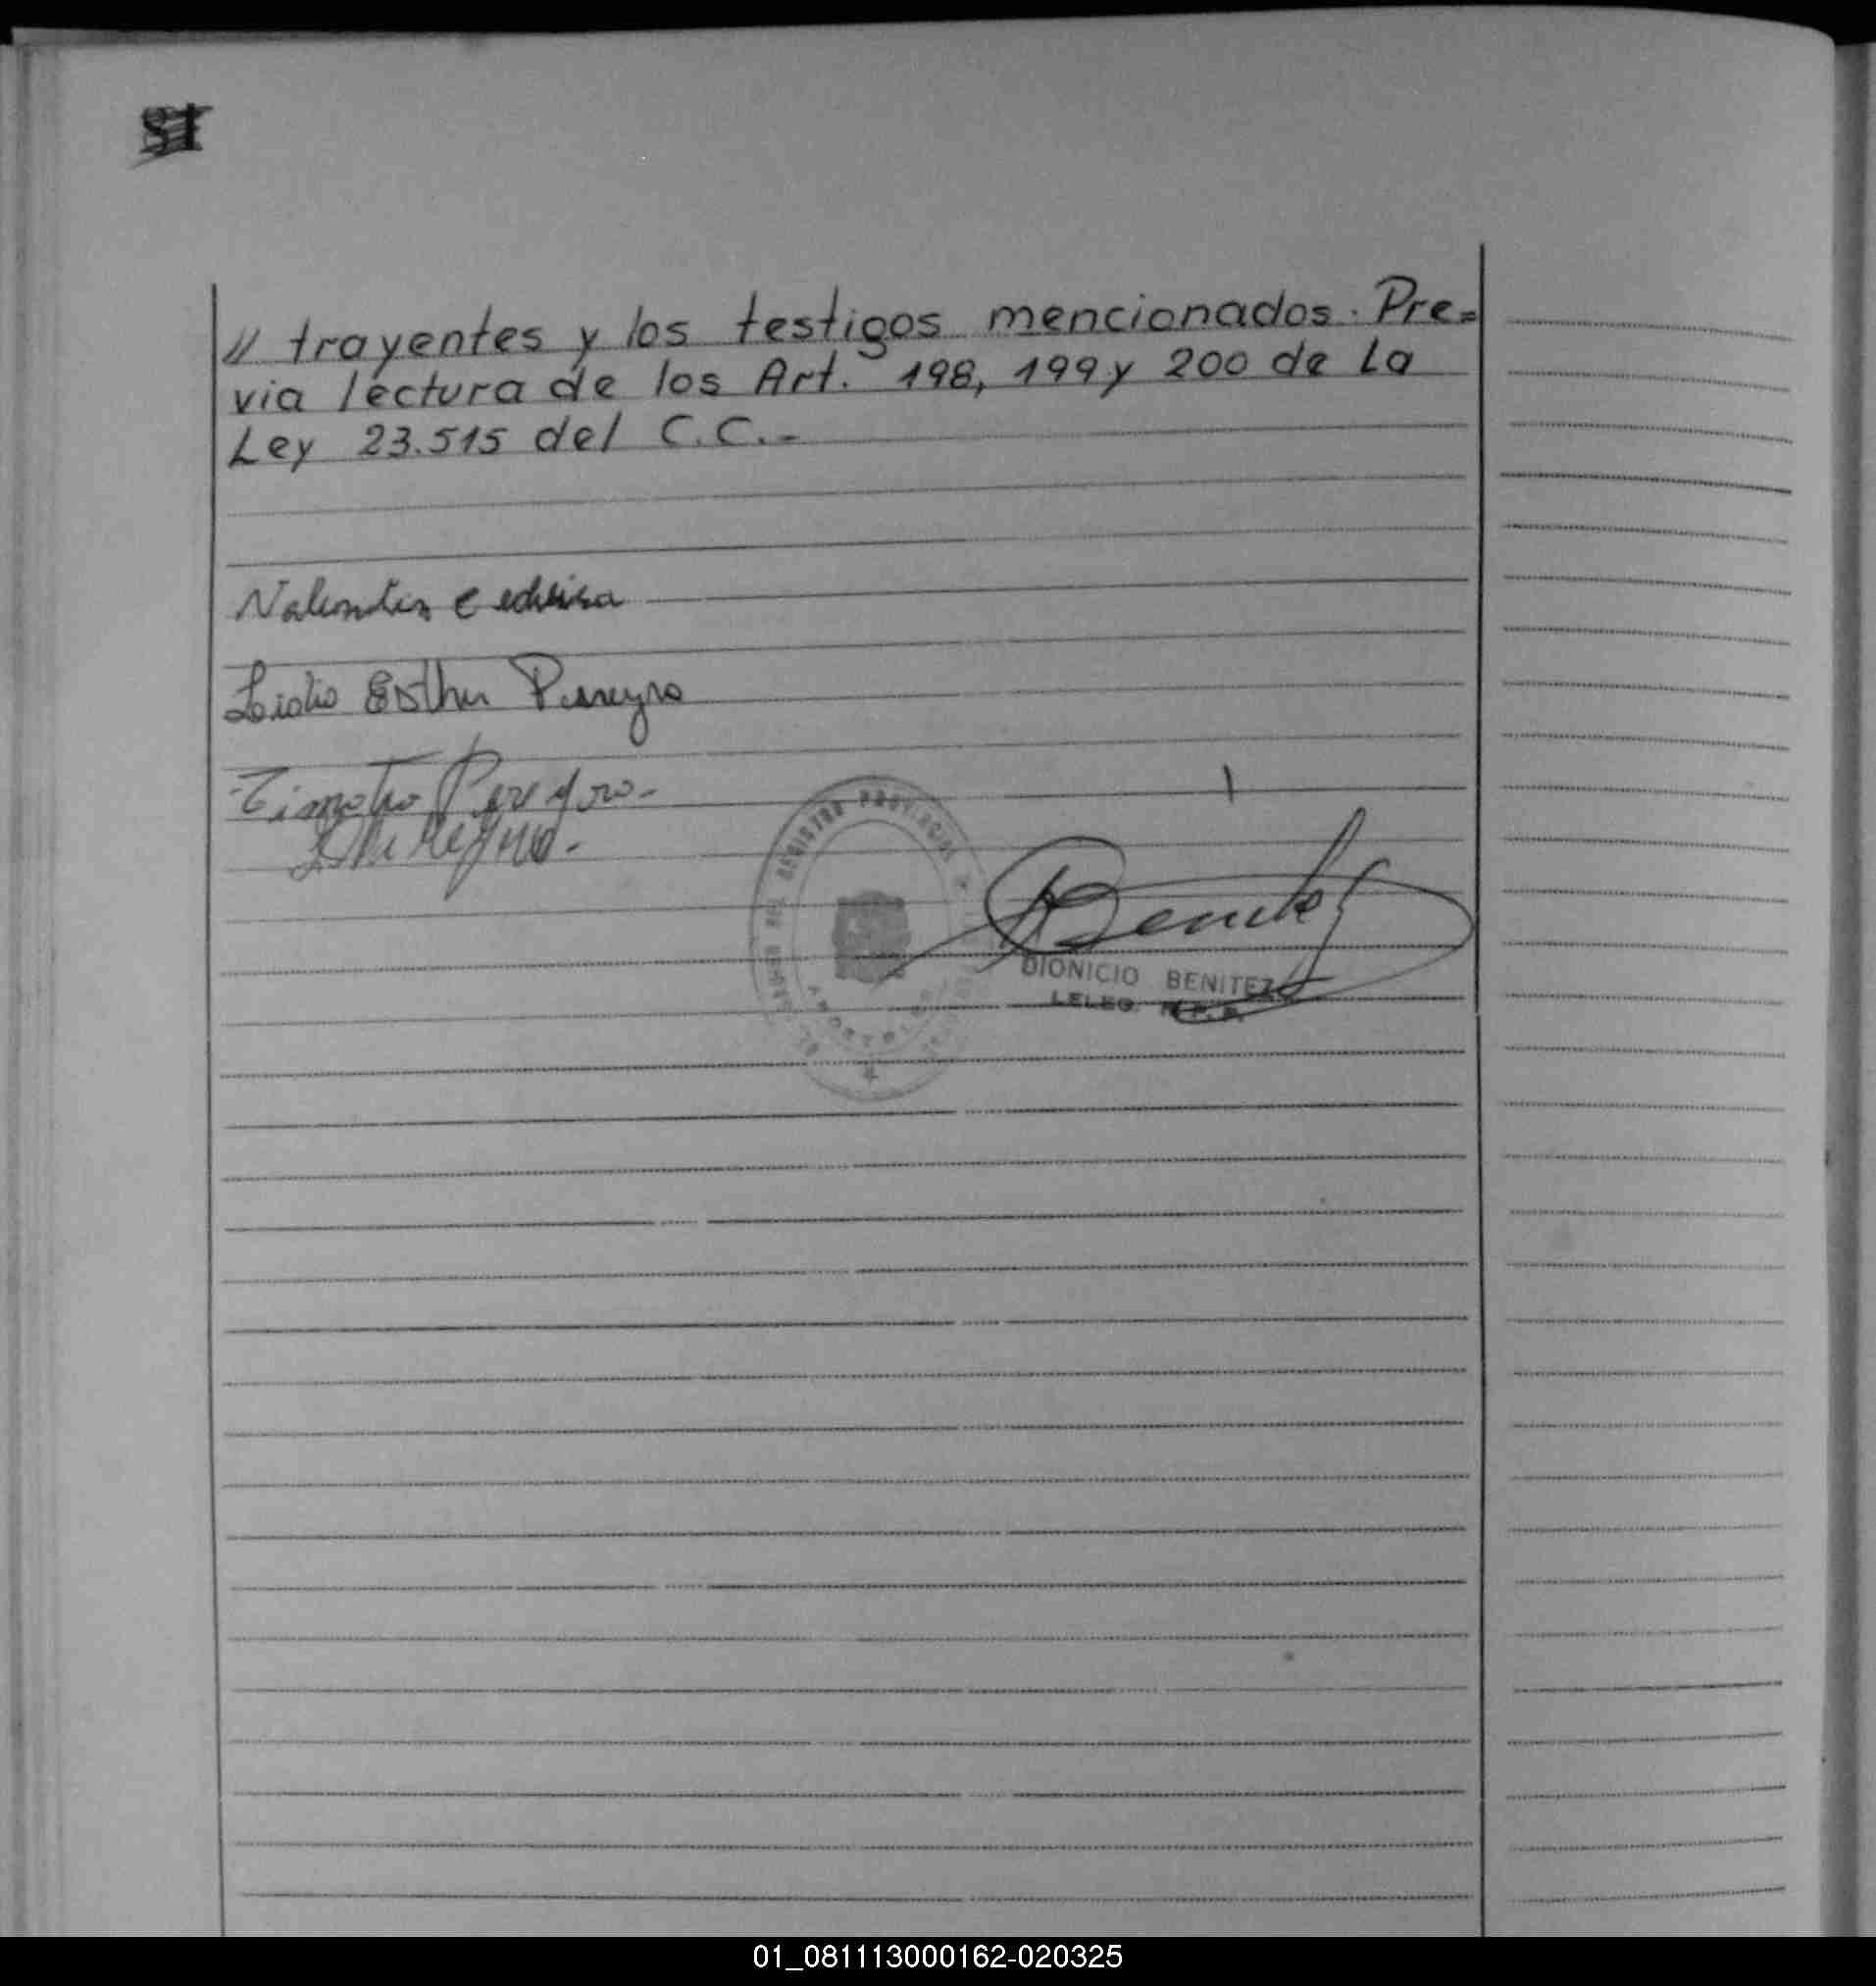 // trayentes y los testigos mencionados. Pre=
via lectura de los Art. 198, 199 y 200 de La
Ley 23.515 del C.C.-
Valentin
Lidia Esther Pereyra
Timoteo Pereyra.-
REGISTRO PROVINCIAL
DIONICIO BENITEZ
01_081113000162-020325